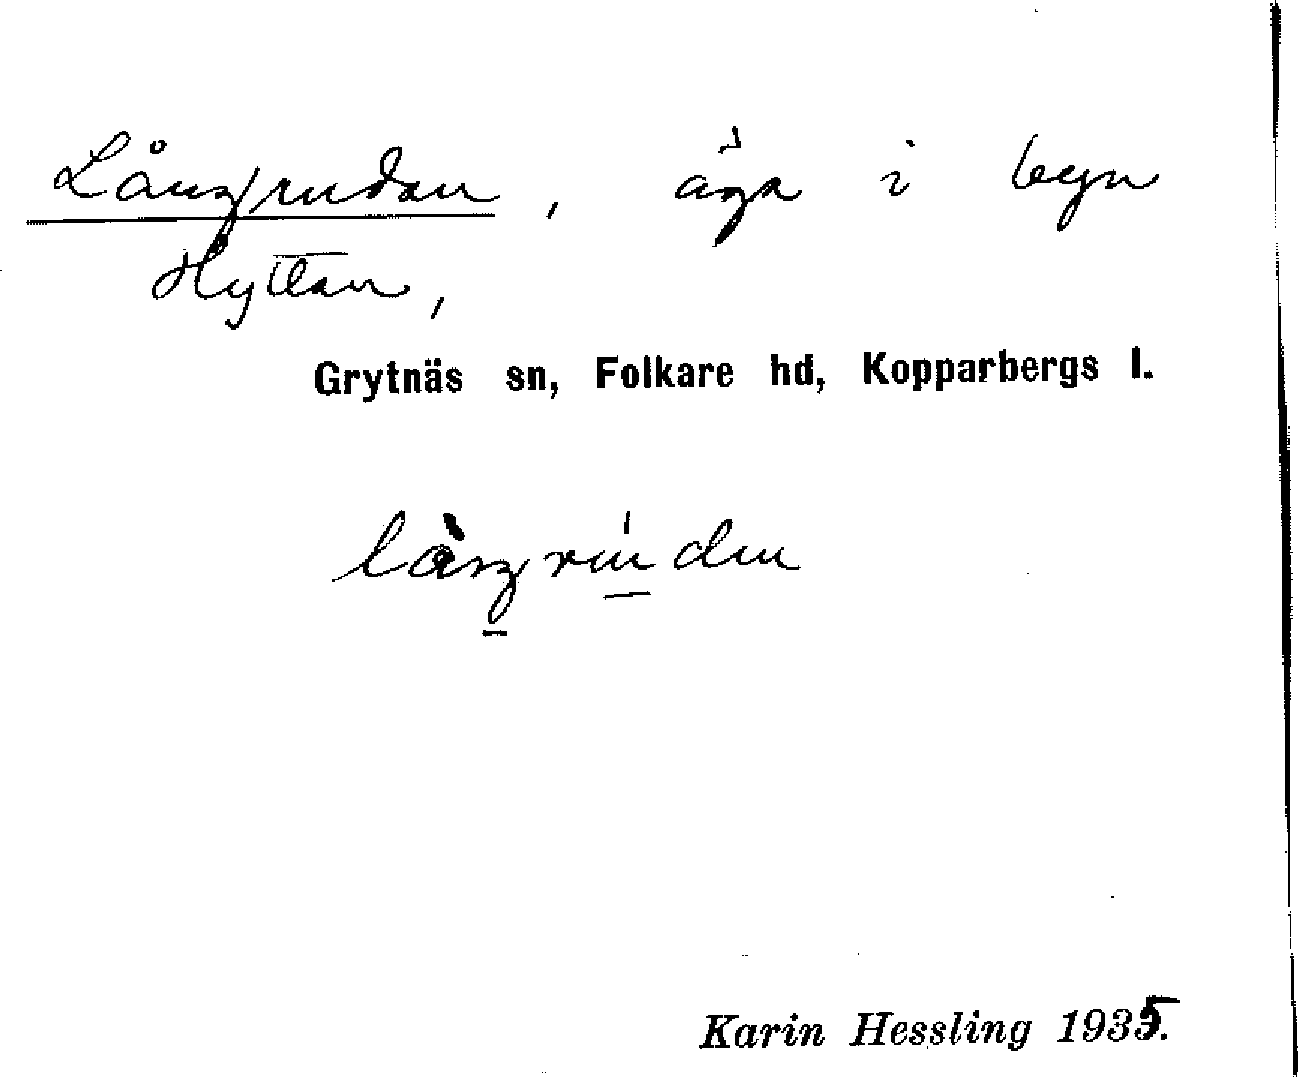 Långrudan, äga i byn
Hyttan,
Grytnäs sn, Folkare hd, Kopparbergs l.
Karin Hessling 1935.